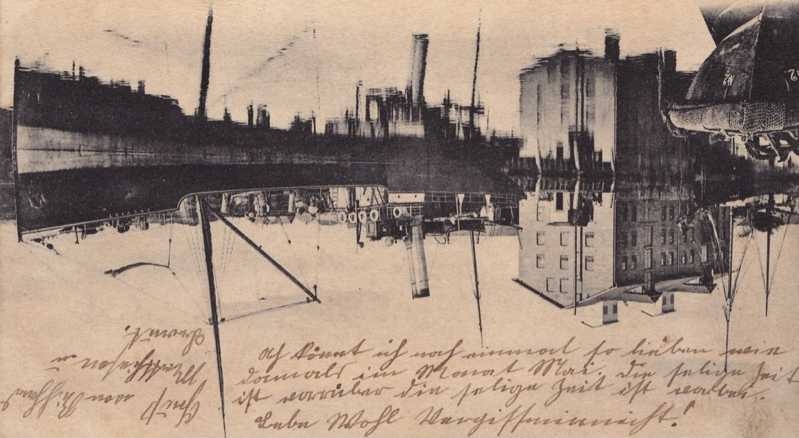 Ach könnt ich noch einmal so lieben wie
damals im Monat Mai. Die selige Zeit
ist vorüber die selige Zeit ist vorbei.
Lebe Wohl Vergissmeinnicht!
Gruß von